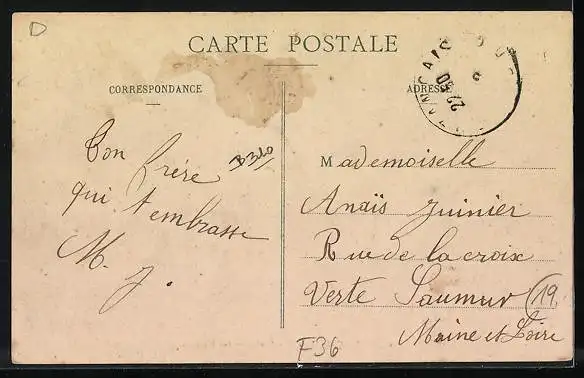 D
CARTE POSTALE
CORRESPONDANCE
ADRESSE
22 30
Ton frère
qui t'embrasse
M. J.
B340
Mademoiselle
Anaïs Juinier
Rue de la croix
Verte Saumur
19
Maine et Loire
F36